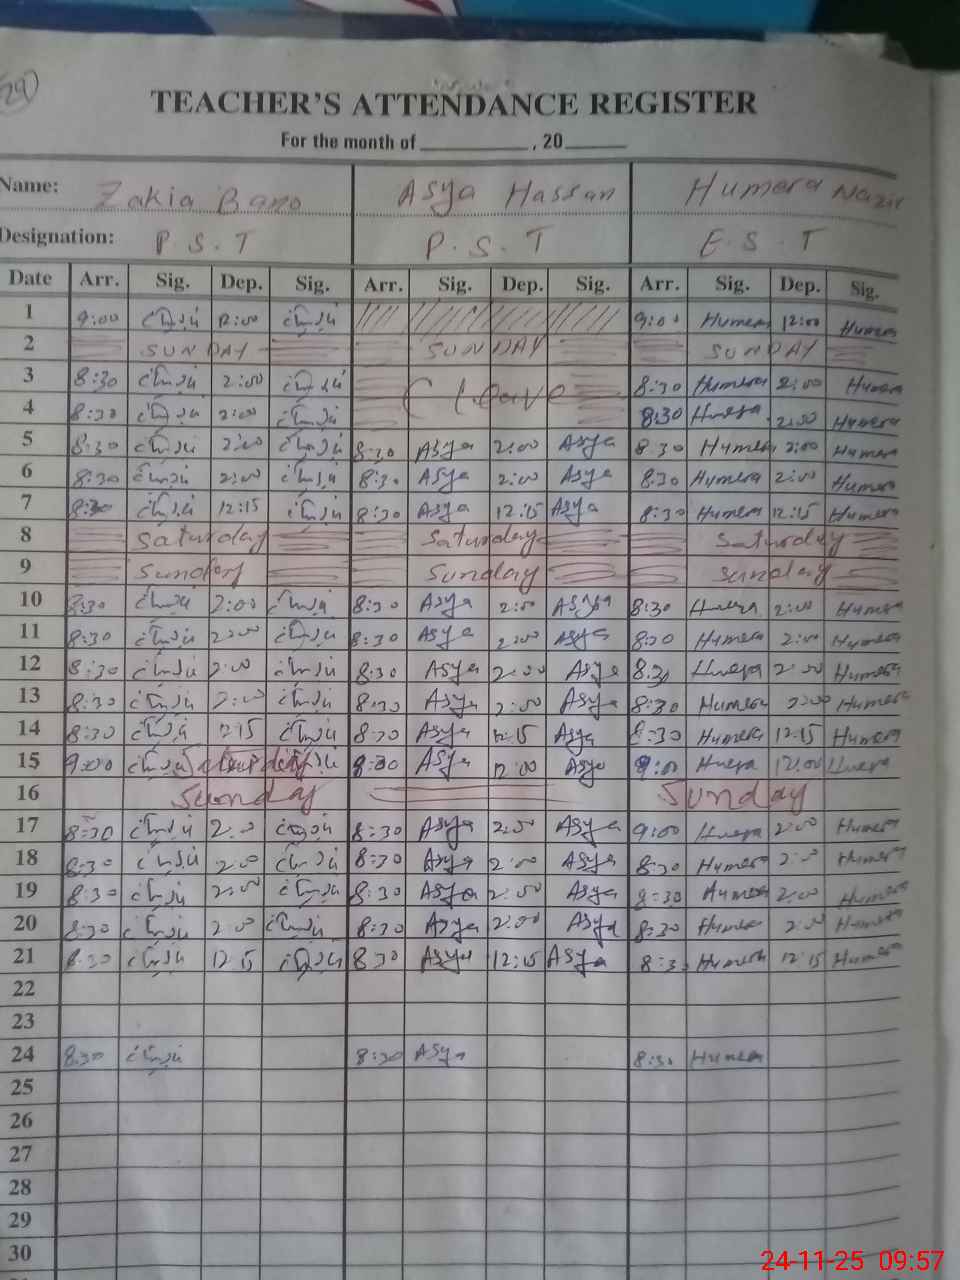 29
TEACHER'S ATTENDANCE REGISTER
For the month of ____________ , 20______
Name: Zakia Bano Asya Hassan Humera Nazir
Designation: P.S.T P.S.T E.S.T
Date Arr. Sig. Dep. Sig. Arr. Sig. Dep. Sig. Arr. Sig. Dep. Sig.
1 9:00 12:00 9:00 Humera 12:00 Humera
2 SUNDAY SUNDAY SUNDAY
3 8:30 2:00 Leave 8:30 Humera 2:00 Humera
4 8:30 2:00 8:30 Humera 2:00 Humera
5 8:30 2:00 8:30 Asya 2:00 Asya 8:30 Humera 2:00 Humera
6 8:30 2:00 8:30 Asya 2:00 Asya 8:30 Humera 2:00 Humera
7 8:30 12:15 8:30 Asya 12:15 Asya 8:30 Humera 12:15 Humera
8 Saturday Saturday Saturday
9 Sunday Sunday Sunday
10 8:30 2:00 8:30 Asya 2:00 Asya 8:30 Humera 2:00 Humera
11 8:30 2:00 8:30 Asya 2:00 Asya 8:30 Humera 2:00 Humera
12 8:30 2:00 8:30 Asya 2:00 Asya 8:30 Humera 2:00 Humera
13 8:30 2:00 8:30 Asya 2:00 Asya 8:30 Humera 2:00 Humera
14 8:30 12:15 8:30 Asya 12:15 Asya 8:30 Humera 12:15 Humera
15 9:00 Saturday Asya 12:00 Asya 9:00 Humera 12:00 Humera
16 Sunday Sunday
17 8:30 2:00 8:30 Asya 2:00 Asya 9:00 Humera 2:00 Humera
18 8:30 2:00 8:30 Asya 2:00 Asya 8:30 Humera 2:00 Humera
19 8:30 2:00 8:30 Asya 2:00 Asya 8:30 Humera 2:00 Humera
20 8:30 2:00 8:30 Asya 2:00 Asya 8:30 Humera 2:00 Humera
21 8:30 12:15 8:30 Asya 12:15 Asya 8:30 Humera 12:15 Humera
22
23
24 8:30 8:30 Asya 8:30 Humera
25
26
27
28
29
30
24-11-25 09:57